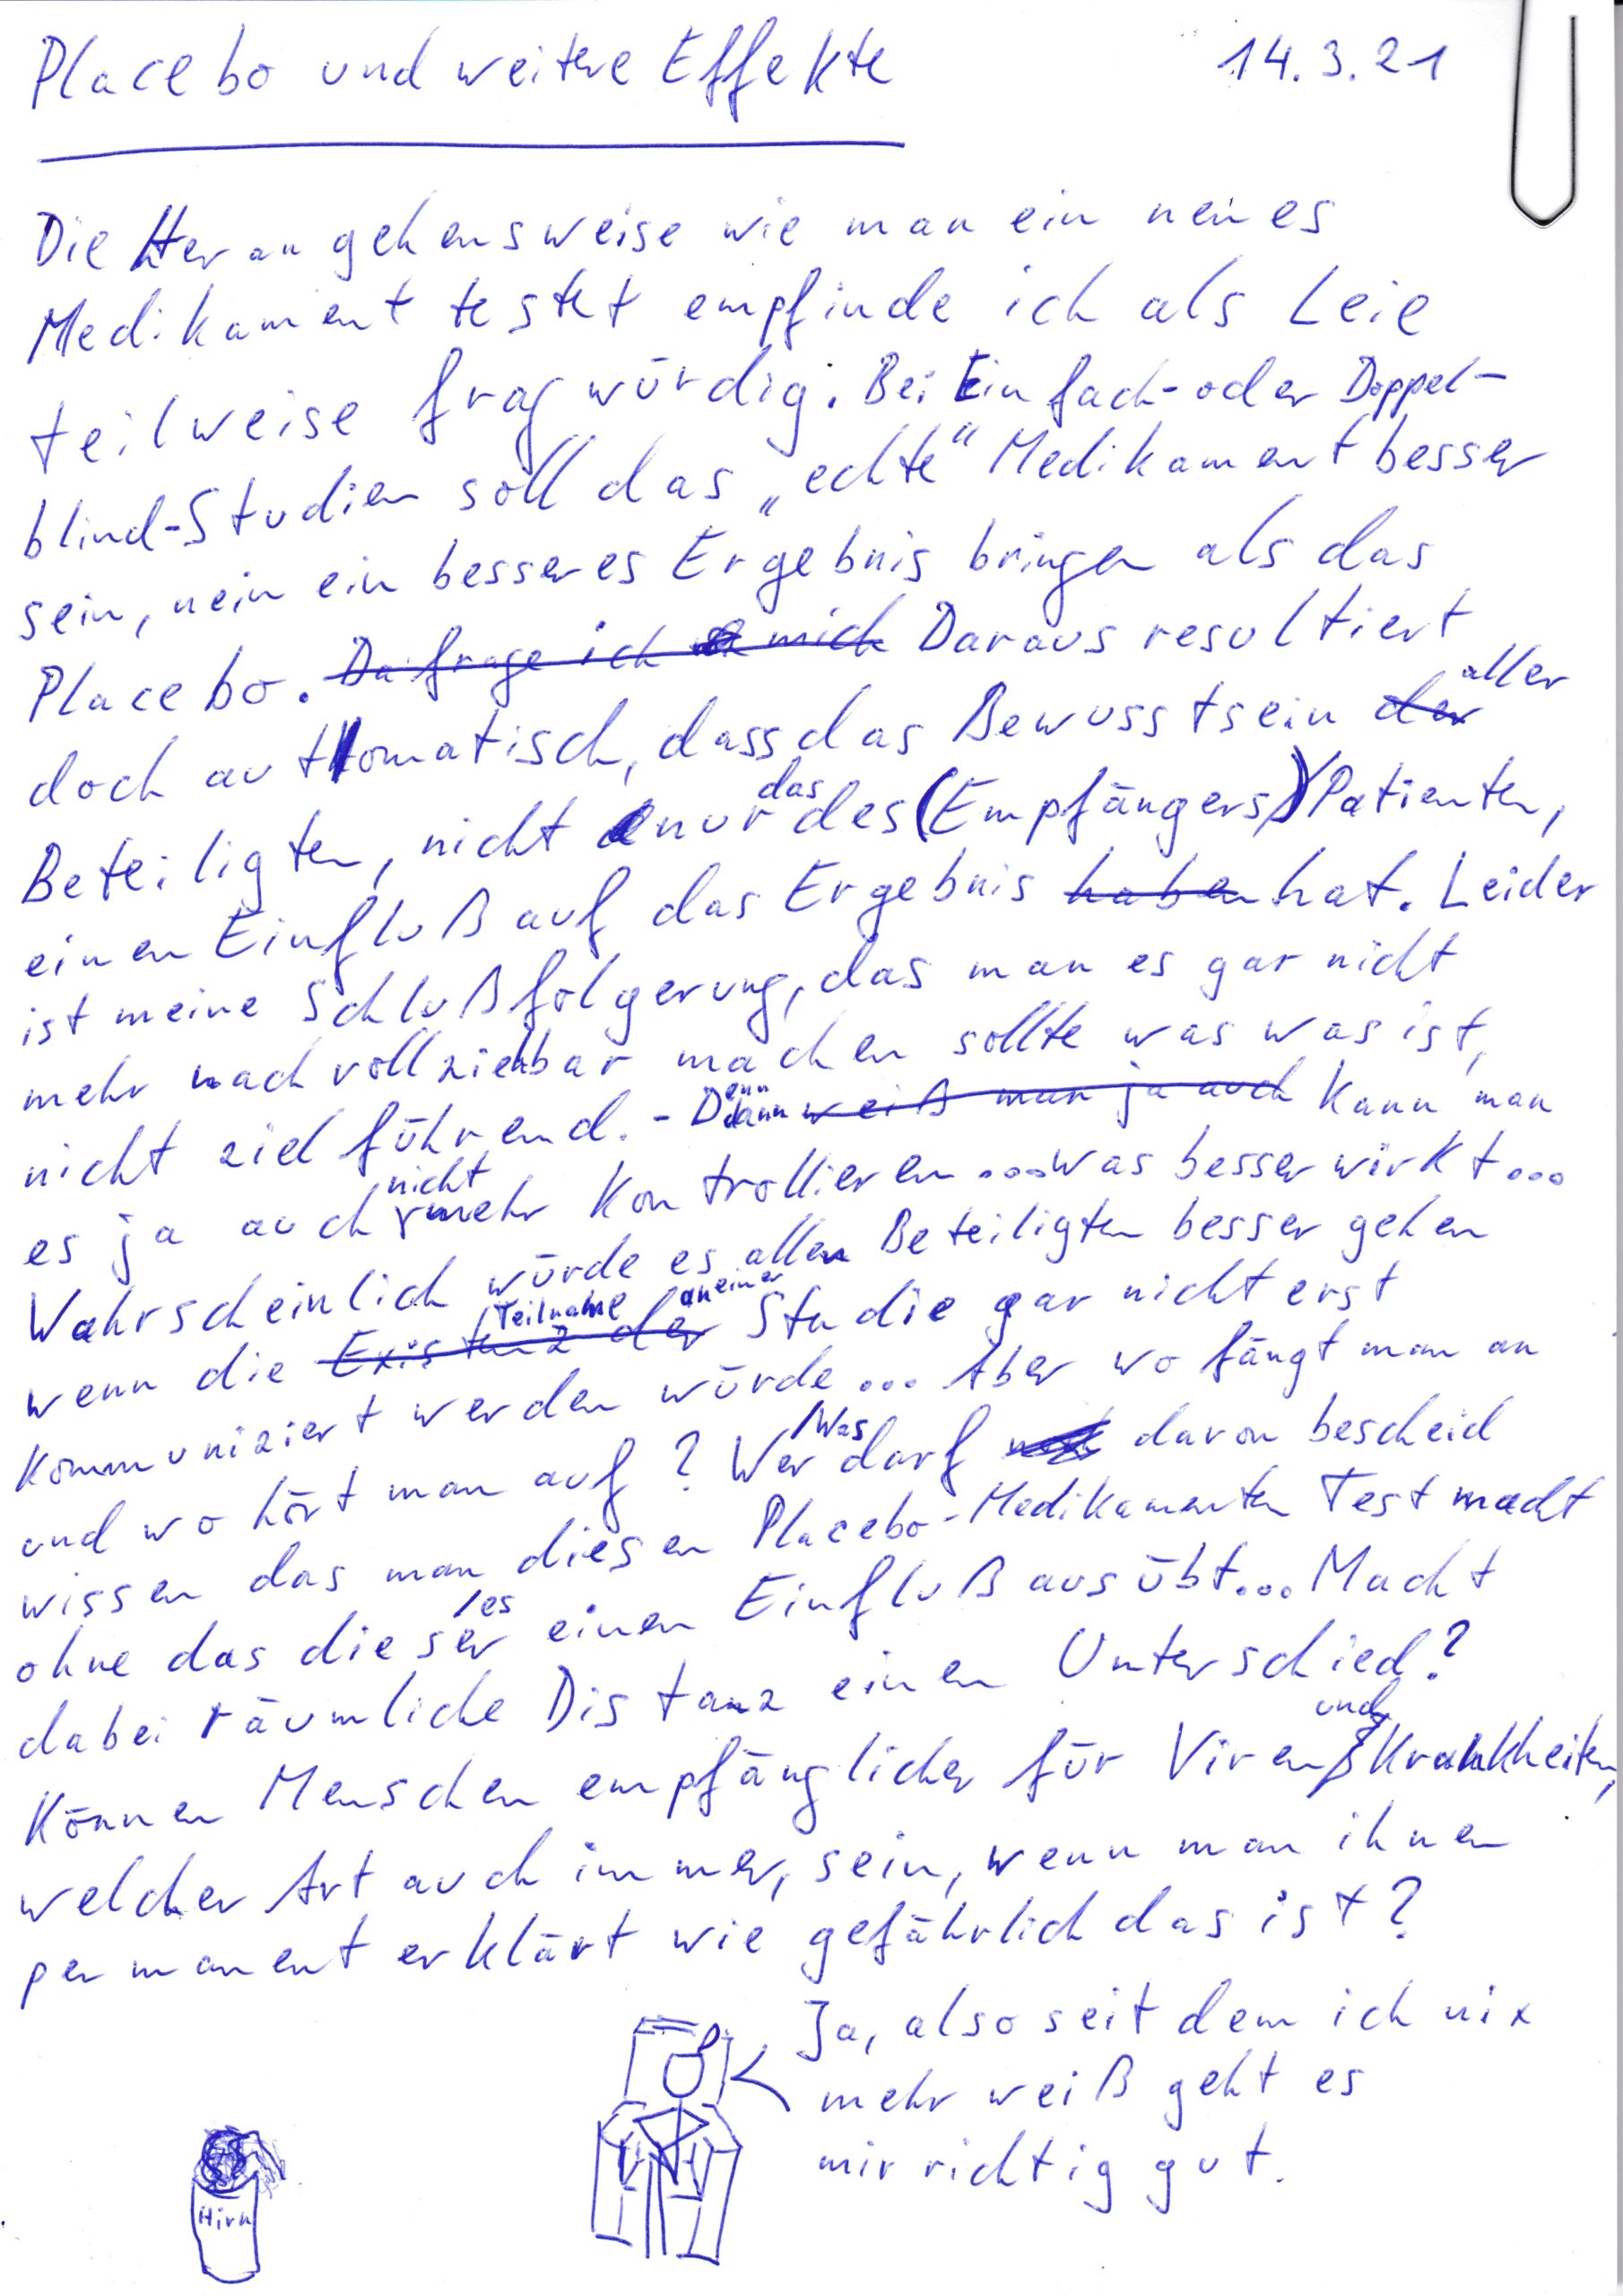 Placebo und weitere Effekte 14.3.21
Die Herangehensweise wie man ein neues
Medikament testet empfinde ich als Leie
teilweise fragwürdig. Bei Einfach- oder Doppel-
blind-Studien soll das „echte“ Medikament besser
sein, nein ein besseres Ergebnis bringen als das
Placebo. Da frage ich mich Daraus resultiert
doch automatisch, dass das Bewusstsein der aller
Beteiligten, nicht nur das des (Empfängers) Patienten,
einen Einfluß auf das Ergebnis haben hat. Leider
ist meine Schlußfolgerung, das man es gar nicht
mehr nachvollziehbar machen sollte was was ist,
nicht zielführend. - Denn dann weiß man ja auch kann man
es ja auch nicht mehr kontrollieren...was besser wirkt...
Wahrscheinlich würde es allen Beteiligten besser gehen
wenn die Existenz der Teilnahme an einer Studie gar nicht erst
kommuniziert werden würde... Aber wo fängt man an
und wo hört man auf? Wer/Was darf davon bescheid
wissen das man diesen Placebo-Medikamenten Test macht
ohne das dieser/es einen Einfluß ausübt... Macht
dabei räumliche Distanz einen Unterschied?
Können Menschen empfänglicher für Viren und Krankheiten,
welcher Art auch immer, sein, wenn man ihnen
permanent erklärt wie gefährlich das ist?
Ja, also seit dem ich nix
mehr weiß geht es
mir richtig gut.
Hirn